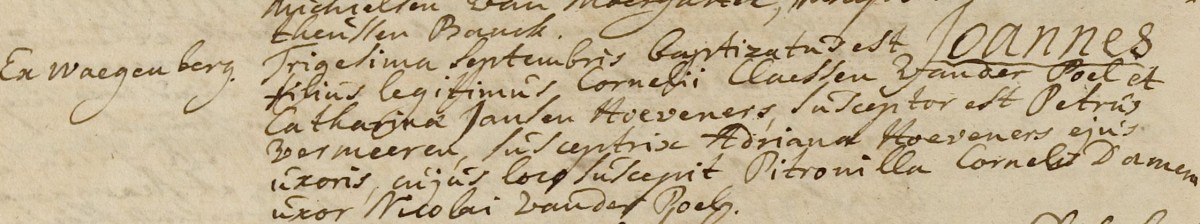 Michielsen van
theussen Banck.
Ex waegenberg. Trigesima septembris baptizatus est Joannes
filius legitimus Cornelii Claessen vander Poel et
Catharina Jansen Hoeveners, susceptor est Petrus
vermeeren, susceptrix Adriana Hoeveners ejus
uxoris, cujus loco suscepit Pitronilla Cornelis Damen
uxor Nicolai vander Poel.